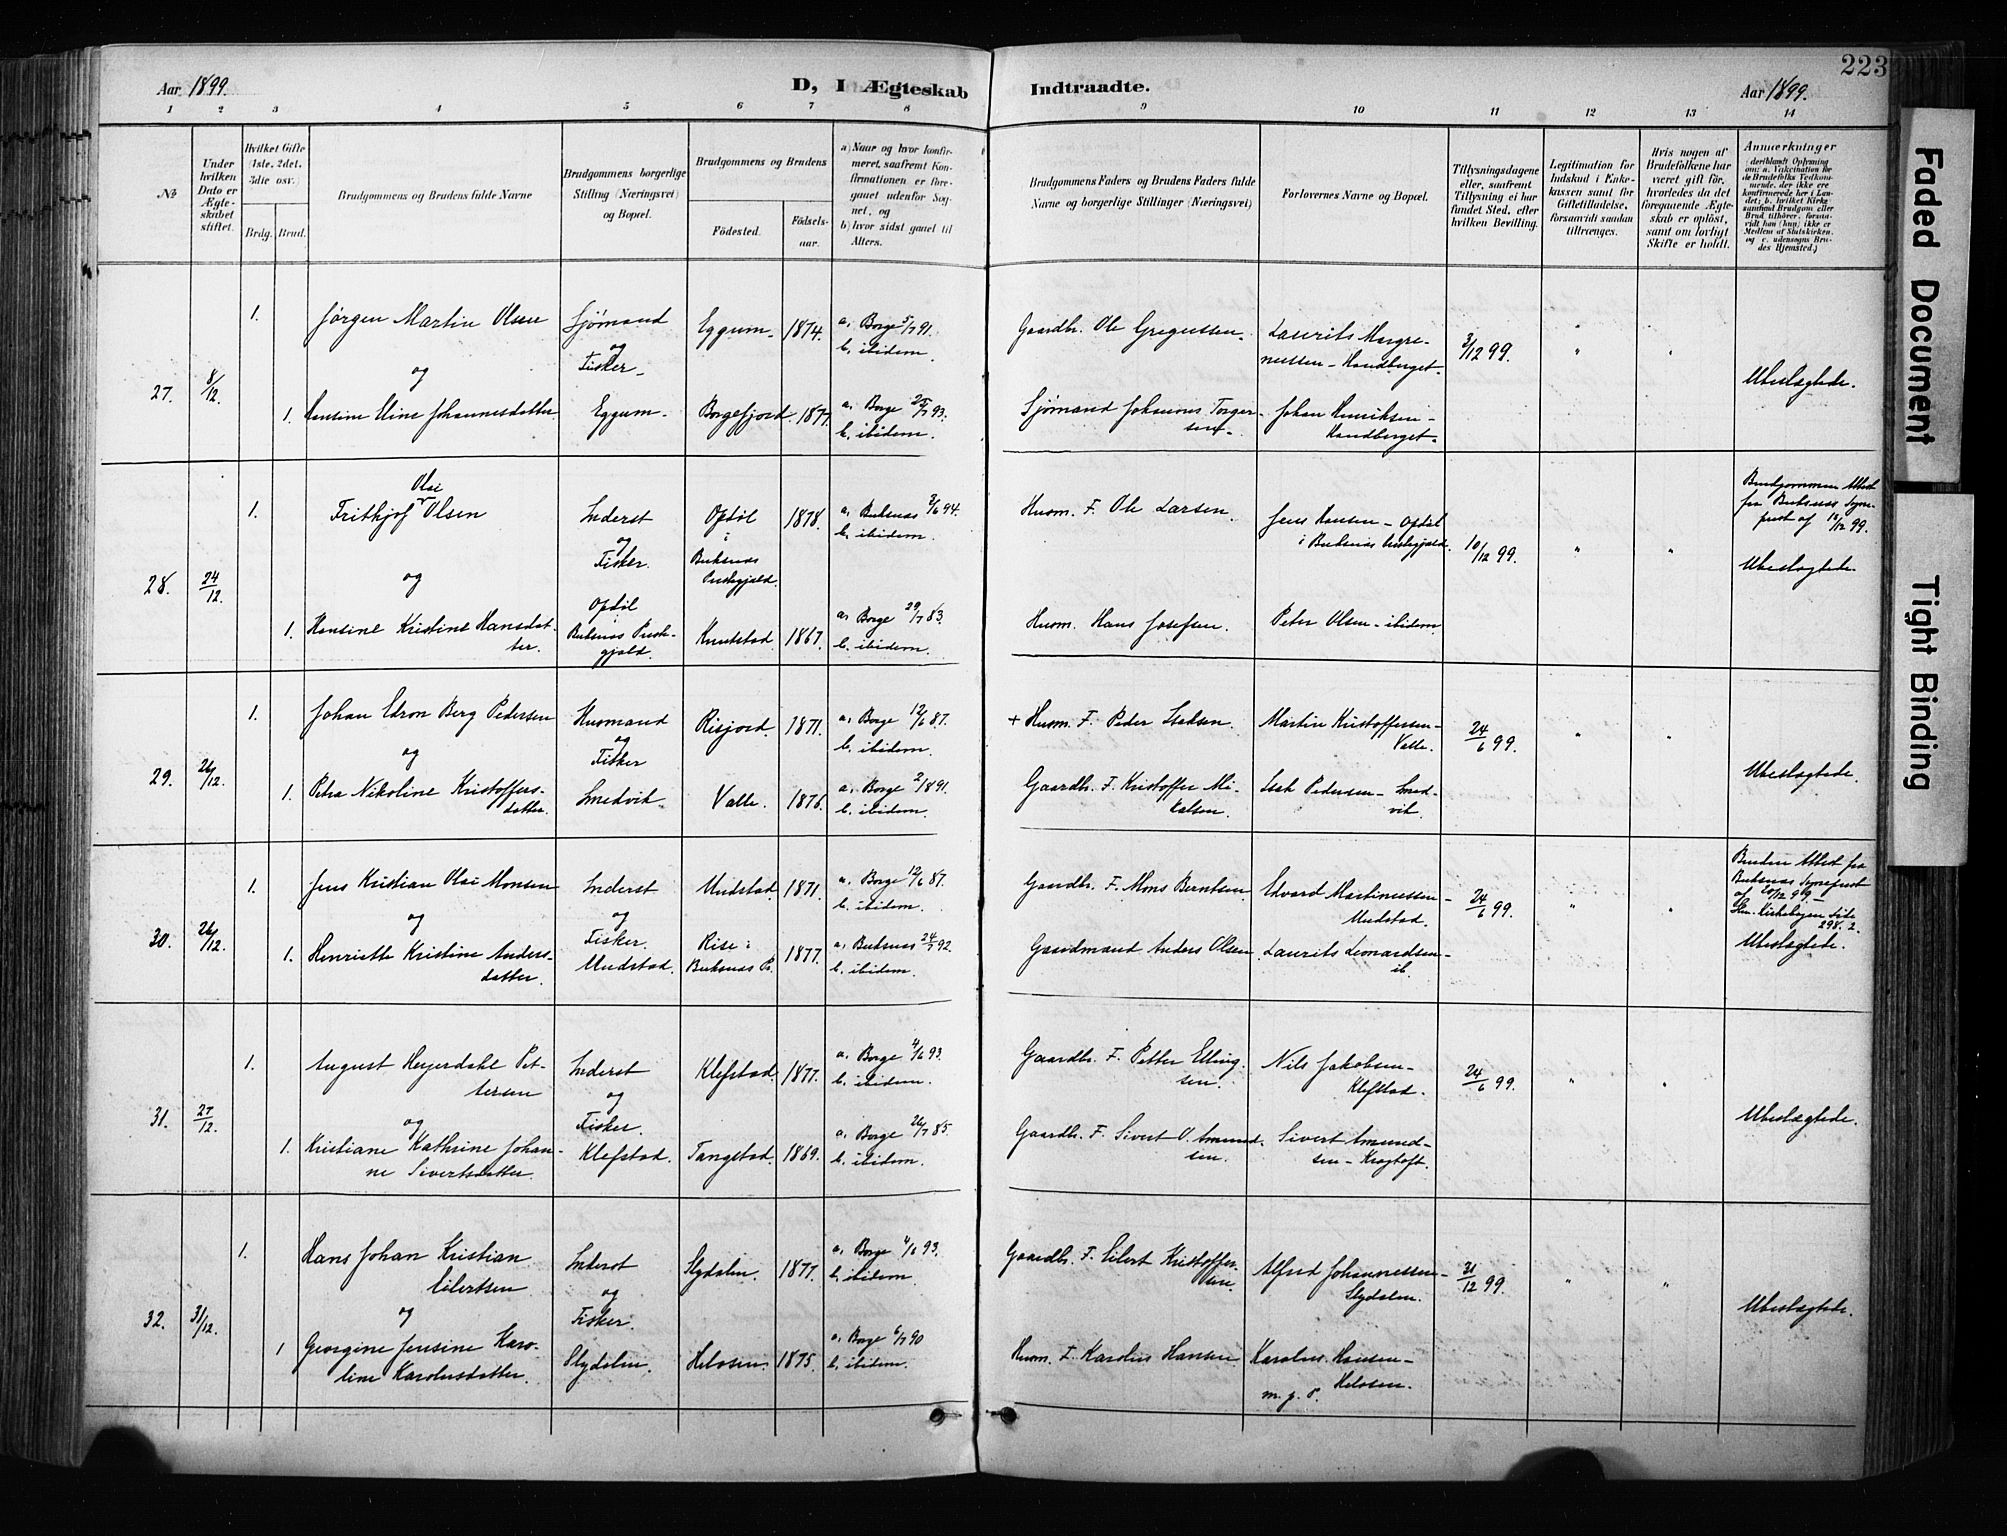 223
Aar 1899.
D, I Ægteskab Indtraadte.
Aar 1899.
1 2 3 4 5 6 7 8 9 10 11 12 13 14
No
Under hvilken Dato er Ægteskabet stiftet.
Hvilket Gifte (1ste, 2det, 3die osv.)
Brdg. Brud.
Brudgommens og Brudens fulde Navne
Brudgommens borgerlige Stilling (Næringsvei) og Bopæl.
Brudgommens og Brudens
Födested. Födsels-aar.
a) Naar og hvor konfirmeret, saafremt Konfirmationen er foregaaet udenfor Sognet, og
b) hvor sidst gaaet til Alters.
Brudgommens Faders og Brudens Faders fulde Navne og borgerlige Stillinger (Næringsvei)
Forlovernes Navne og Bopæl.
Tillysningsdagene eller, saafremt Tillysning ei har fundet Sted, efter hvilken Bevilling.
Legitimation for Indskud i Enkekassen samt for Giftetilladelse, forsaavidt saadan tiltrænges.
Hvis nogen af Brudefolkene har været gift för, hvorledes da det foregaaende Ægteskab er oplöst, samt om lovligt Skifte er holdt.
Anmærkninger
(deriblandt Oplysning om: a. Vaccination for de Brudefolks Vedkommende, der ikke ere konfirmerede her i Landet; b. hvilket Kirkesamfund Brudgom eller Brud tilhörer, forsaavidt han (hun) ikke er Medlem af Statskirken, og c. udensogns Brudes Hjemsted.)
27. 8/12. 1. Jørgen Martin Olsen Sjømand og Fisker - Eggum - 1874. a. Borge 5/7 91. b. ibidem. Gaardbr. Ole Gregussen. Laurits Margrenussen - Handberget. 3/12 99. " "
og
1. Hansine Eline Johannesdatter Eggum - Borgefjord. 1877. a. Borge 25/7 93. b. ibidem. Sjømand Johannes Torgersen. Johan Henriksen - Handberget. Ubeslægtede.
28. 24/12. 1. Frithjof Olai Olsen Inderst og Fisker. Opdöl i Buksnæs Prestegjæld. 1878. a. Buksnæs 3/6 94. b. ibidem. Husm. F. Ole Larsen. Jens Hansen - Opdöl i Buksnæs Prestegjæld. 10/12 99. " " Brudgommens Attest fra Buksnæs Sogneprest af 18/12 99.
Ubeslægtede.
og
1. Hansine Kristine Hansdatter. Opdöl Buksnæs Prestegjæld. Knutstad 1867. a. Borge 29/7 83. b. ibidem. Husm. Hans Josefsen. Peter Olsen - ibidem
29. 26/12. 1. Johan Edron Berg Pedersen Husmand og Fisker Risjord. 1871. a. Borge 12/6 87. b. ibidem. + Husm. F. Peder Isaksen. Martin Kristoffersen - Valle. 24/6 99. " "
og
1. Petra Nikoline Kristoffersdatter. Smedvik. Valle. 1876. a. Borge 2/8 91. b. ibidem. Gaardbr. F. Kristoffer Mikalsen. Isak Pedersen - Smedvik. Ubeslægtede.
30. 26/12. 1. Jens Kristian Olai Monsen Inderst og Fisker. Mudstad. Mudstad. 1871. a. Borge 12/6 87. b. ibidem. Gaardbr. F. Mons Berntsen. Edvard Martinussen - Mudstad. 24/6 99. " " Brudens Attest fra Buksnæs Sogneprest af 20/12 99. -
Kirkebogen Side 298. 2.
Ubeslægtede.
og
1. Henriette Kristine Andersdatter. Rise i Buksnæs P. 1877. a. Buksnæs 24/7 92. b. ibidem. Gaardmand Anders Olsen Laurits Leonardsen - ib.
31. 27/12. 1. August Heyerdahl Pettersen Inderst og Fisker. Klefstad. 1877. a. Borge 4/6 93. b. ibidem. Gaardbr. F. Petter Ellingsen. Nils Jakobsen - Klefstad. 24/6 99. " "
og
1. Kristiane Kathrine Johanne Sivertsdatter. Klefstad. Tangstad. 1869. a. Borge 26/7 85. b. ibidem. Gaardbr. F. Sivert O. Amundsen. Sivert Amundsen - Kragtoft. Ubeslægtede.
32. 31/12. 1. Hans Johan Kristian Eilertsen Inderst og Fisker. Slydalen. 1877. a. Borge 4/6 93. b. ibidem. Gaardbr. F. Eilert Kristoffersen. Alfred Johannessen - Slydalen. 31/12 99. " "
og
1 Georgine Jensine Karoline Karolusdatter. Slydalen. Helosen. 1875. a. Borge 6/7 90 b. ibidem. Husm. F. Karolus Hansen Karolus Hansen - Helosen. m. p. P. Ubeslægtede.
Faded Document
Tight Binding